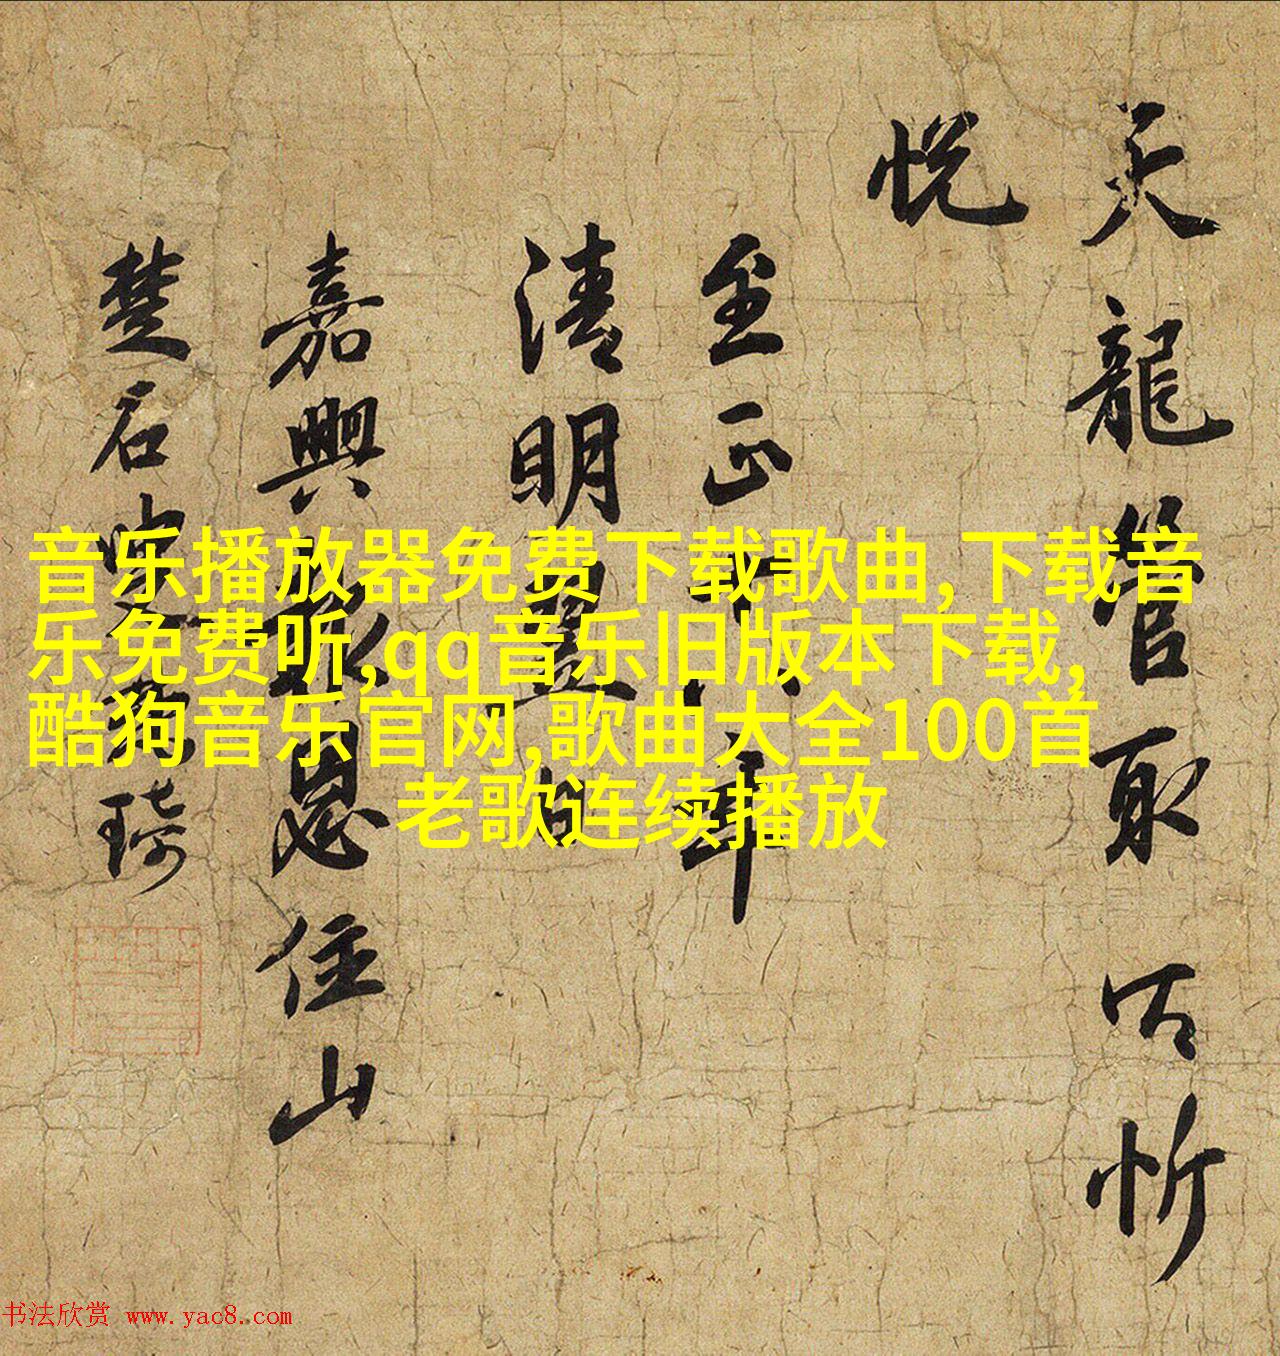 天龍管取以忻
悦
至正年
清明日
嘉興報恩住山
楚石琦
音乐播放器免费下载歌曲,下载音
乐免费听,qq音乐旧版本下载,
酷狗音乐官网,歌曲大全100首
老歌连续播放
书法欣赏 www.yac8.com